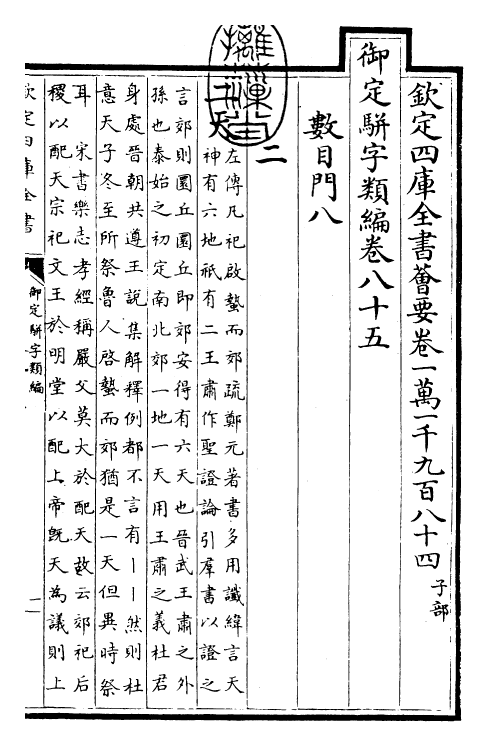 欽定四庫全書薈要卷一萬一千九百八十四 子部
御定駢字類編卷八十五
數目門八
二
二天 左傳凡祀啟蟄而郊疏鄭元著書多用讖緯言天
神有六地祇有二王肅作聖證論引羣書以證之
言郊則圜丘圜丘即郊安得有六天也晉武王肅之外
孫也泰始之初定南北郊一地一天用王肅之義杜君
身處晉朝共遵王說集解釋例都不言有丨丨然則杜
意天子冬至所祭魯人啓蟄而郊猶是一天但異時祭
耳 宋書樂志孝經稱嚴父莫大於配天故云郊祀后
稷以配天宗祀文王於明堂以配上帝旣天為議則上
欽定四庫全書
御定駢字類編
一